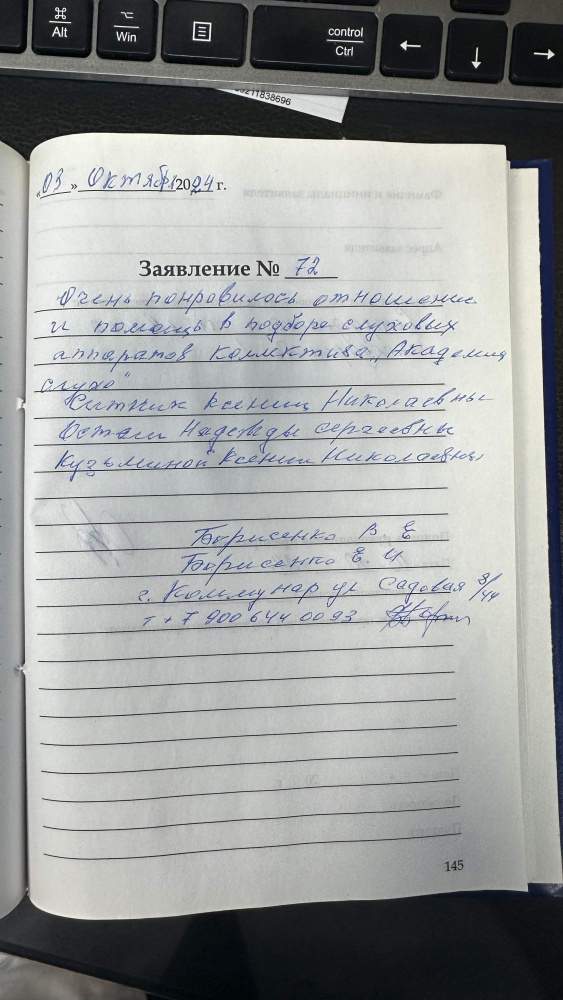 ⌘
Alt
⌥
Win
control
Ctrl
←
↓
→
9211838696
«03» Октября 2024 г.
Заявление № 72
Очень понровилось отношение
и помощь в подборе слуховых
аппаратов коллектива „Академия
слухо"
Ксении Николаевны
Надежды Сергеевны
Кузьминой Ксении Николаевны
Борисенко В Е
Борисенко Е. И
г. Коммунар ул Садовая 8/44
т +7 900 644 00 93
145